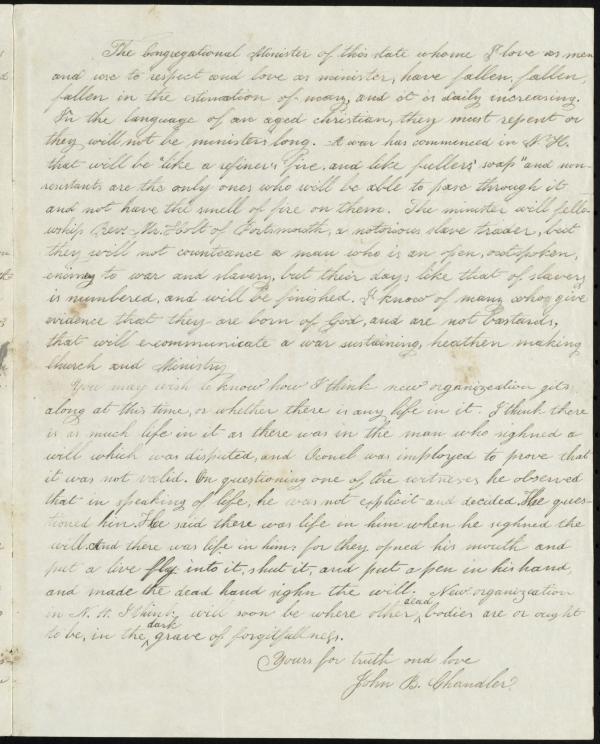 The Congregational Minister of this state whome I love as men
and use to respect and love as minister, have fallen, fallen,
fallen in the estimation of many, and it is daily increasing.
In the language of an aged christian, they must repent or
they will not be ministers long. A war has commenced in N. H.
that will be "like a refiner's fire, and like fullers' soap" and non-
resistants are the only ones who will be able to pass through it
and not have the smell of fire on them. The minister will fello-
wship Rev. Mr. Holt of Portsmouth, a notorious slave trader, but
they will not counteance a man who is an open, outspoken,
enimy to war and slavery, but their days like that of slavery
is numbered, and will be finished. I know of many who give
evidence that they are born of God, and are not bastards,
that will excommunicate a war sustaining, heathen making
Church and Ministry
You may wish to know how I think new organizeation gits
along at this time, or whether there is any life in it. I think there
is as much life in it as there was in the man who sighned a
will which was disputed, and Oconel was imployed to prove that
it was not valid. On questioning one of the witneses he observed
that in speaking of life, he was not explicit and decided. He ques-
tioned him. He said there was life in him when he sighned the
will. And there was life in him; for they opned his mouth and
put a live fly into it, shut it, and put a pen in his hand,
and made the dead hand sighn the will. New organization
in N. H. I think, will soon be where other dead bodies are or ought
to be, in the dark grave of forgitfullness.
Yours for truth and love
John B. Chandler.